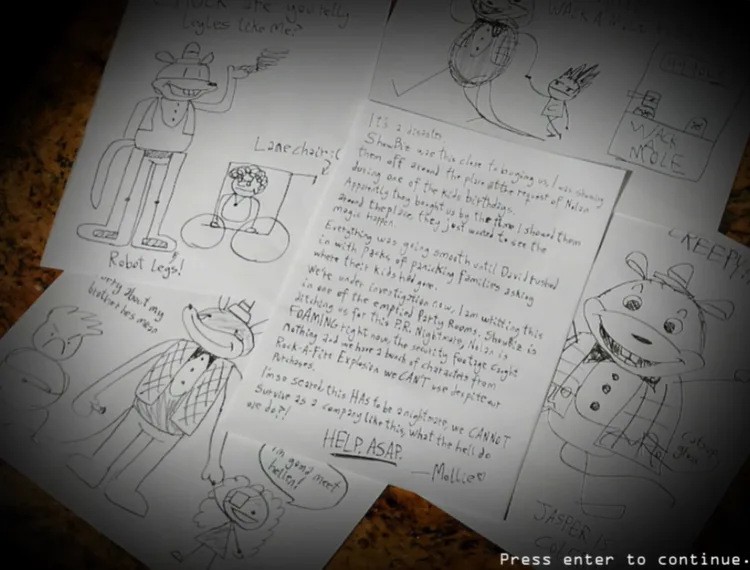 you Nelly
Legless like me?
WACK A
Lame chair :(
WACK
A
MOLE
Robot Legs!
CREEPY
about my
brother hes mean
It's a disaster
ShowBiz was this close to buying us, I was showing
them off around the place at the request of Nolan
during one of the kids birthdays.
Apparently they bought us by the time I showed them
around the place, they just wanted to see the
magic happen.
Everything was going smooth until David rushed
in with Packs of panicking families asking
where their kids had gone.
We're under investigation now, I am whitting this
in one of the emptied Party Rooms, ShowBiz is
ditching us for this P.R. Nightmare, Nolan is
FOAMING right now, the security footage caught
Nothing and we have a bunch of characters from
Rock-A-Fire Explosion we CAN'T use despite our
Purchases.
I'm so search this HAS to be a nightmare, we CANNOT
Survive as a company like this, what the hell do
we do?!
HELP. ASAP.
—Mollie
gonna meet
hellen!
JASPER IS
Press enter to continue.